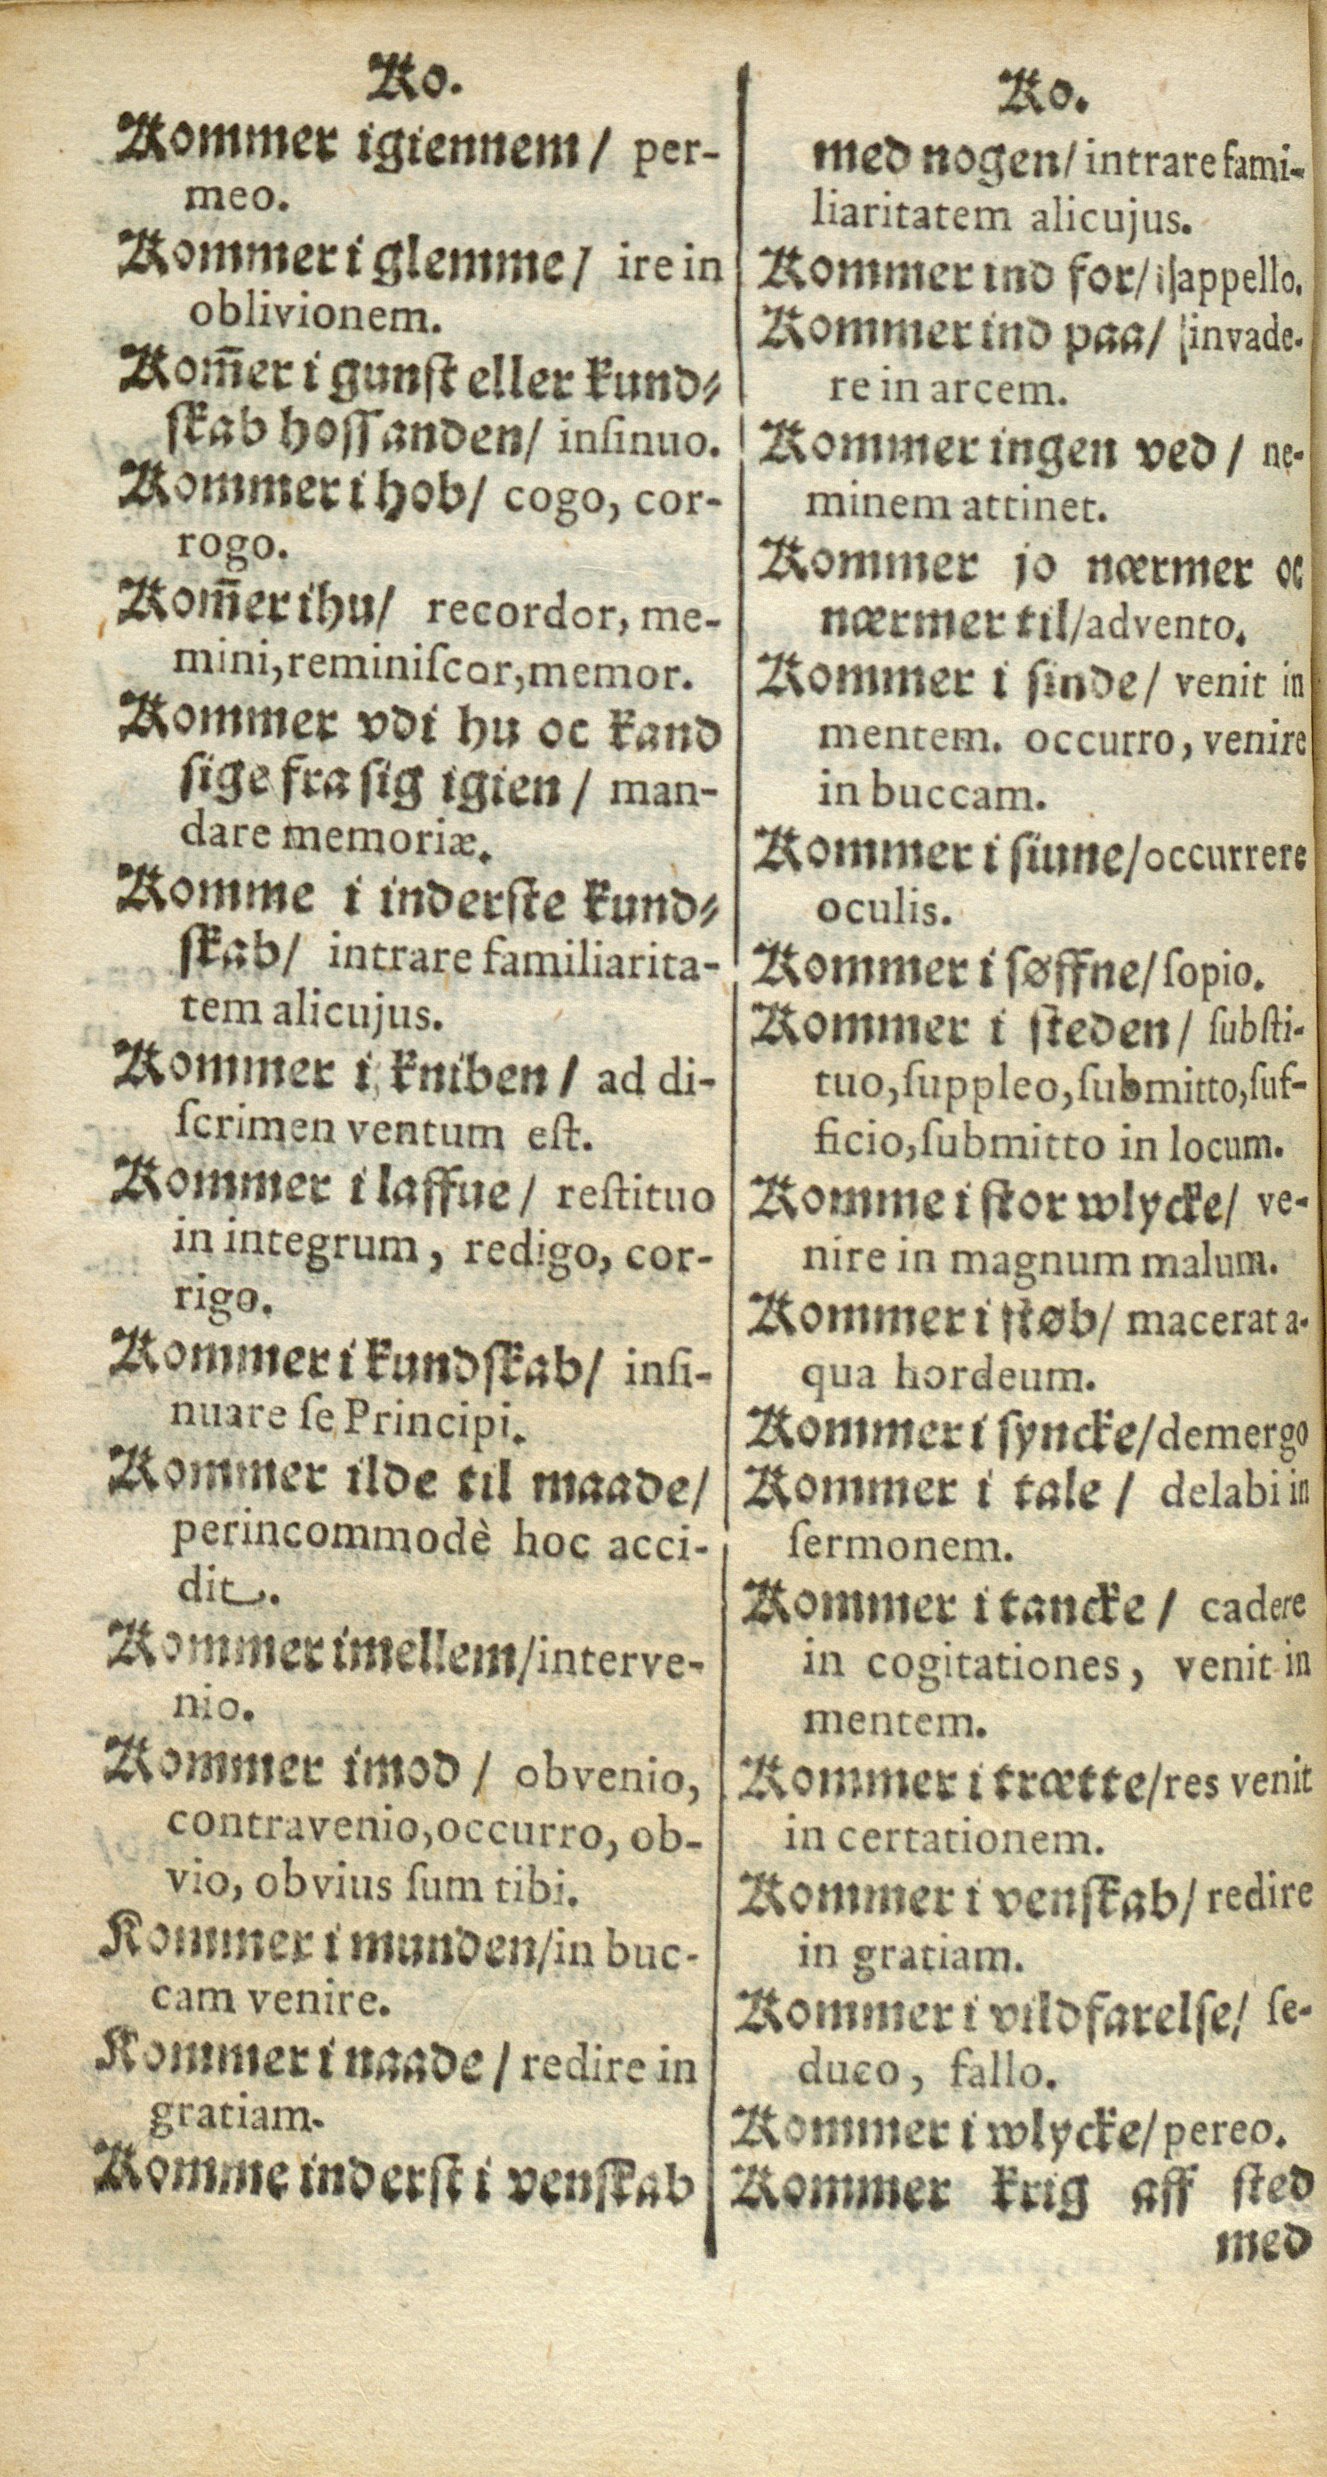 Ko.
Kommer igiennem / per-
meo.
Kommer i glemme / ire in
oblivionem.
Kom̃er i gunſt eller kund⸗
ſkab hoſſ anden / inſinuo.
Kommer i hob / cogo, cor-
rogo.
Kom̃er ihu / recordor, me-
mini, reminiſcor, memor.
Kommer vdi hu oc kand
sige fra ſig igien / man-
dare memoriæ.
Komme i inderſte kund⸗
ſkab / intrare familiarita-
tem alicujus.
Kommer i kniben / ad di-
ſcrimen ventum eſt.
Kommer i laffue / reſtituo
in integrum, redigo, cor-
rigo.
Kommer i kundſkab / inſi-
nuare ſe Principi.
Kommer ilde til maade /
perincommodè hoc acci-
dit.
Kommer imellem / interve-
nio.
Kommer imod / obvenio,
contravenio, occurro, ob-
vio, obvius ſum tibi.
Kommer i munden / in buc-
cam venire.
Kommer i naade / redire in
gratiam.
Komme inderſt i venſkab
Ko.
med nogen / intrare fami-
liaritatem alicujus.
Kommer ind for / appello.
Kommer ind paa / invade-
re in arcem.
Kommer ingen ved / ne-
minem attinet.
Kommer jo nærmer oc
nærmer til / advento.
Kommer i ſinde / venit in
mentem. occurro, venire
in buccam.
Kommer i ſiune / occurrere
oculis.
Kommer i ſøffne / ſopio.
Kommer i ſteden / ſubſti-
tuo, ſuppleo, ſubmitto, ſuf-
ficio, ſubmitto in locum.
Komme i ſtor wlycke / ve-
nire in magnum malum.
Kommer i ſtøb / macerat a-
qua hordeum.
Kommer i ſyncke / demergo
Kommer i tale / delabi in
ſermonem.
Kommer i tancke / cadere
in cogitationes, venit in
mentem.
Kommer i trætte / res venit
in certationem.
Kommer i venſkab / redire
in gratiam.
Kommer i vildfarelſe / ſe-
duco, fallo.
Kommer i wlycke / pereo.
Kommer krig aff ſted
med